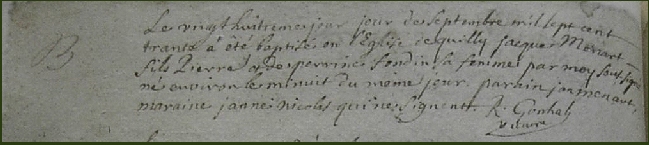 B
Le vingt huitieme jour jour de septembre mil sept cent
trante a été baptisé en l'Eglise de quilly jacque Moriart
fils Pierre et de perrine fondin sa femme par moy sous signé
né environ le minuit du même jour. parain jan menart,
maraine janne nicolas qui ne signent. R. Gouhal
vicaire